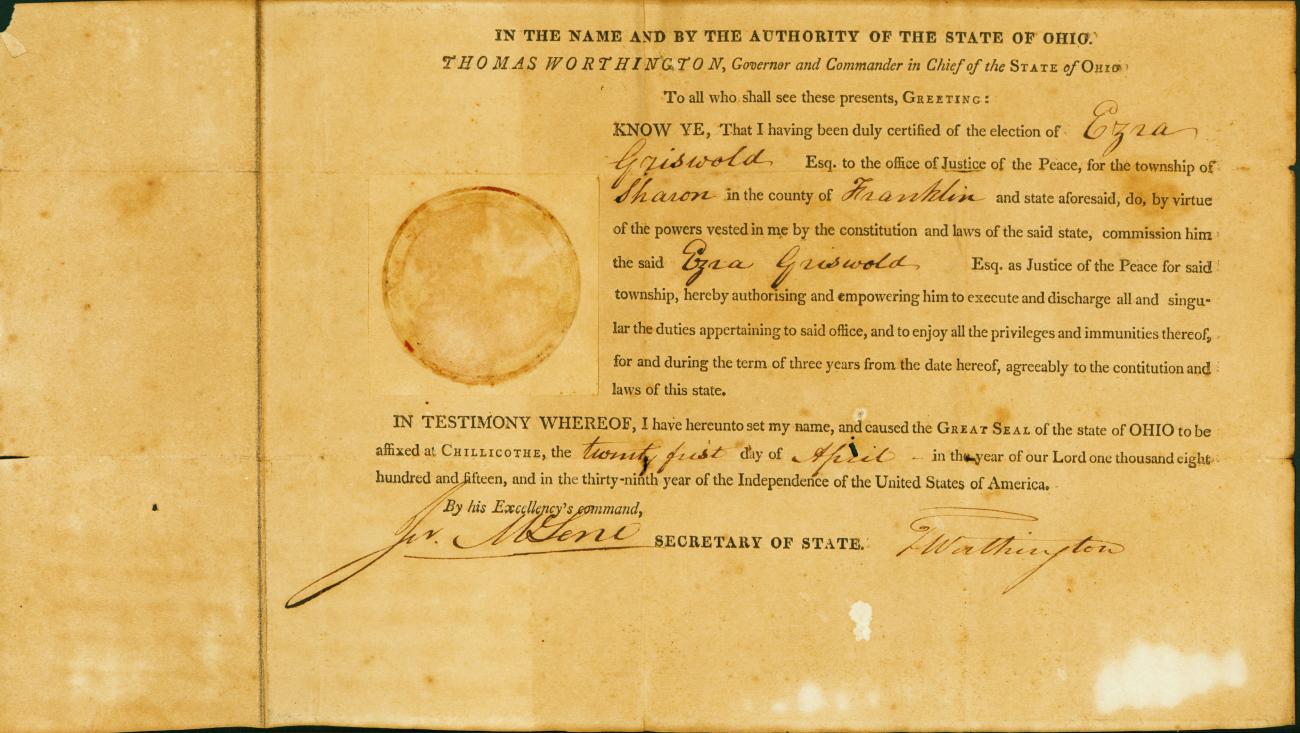 IN THE NAME AND BY THE AUTHORITY OF THE STATE OF OHIO.
THOMAS WORTHINGTON, Governor and Commander in Chief of the STATE of OHIO
To all who shall see these presents, GREETING:
KNOW YE, That I having been duly certified of the election of Ezra
Griswold Esq. to the office of Justice of the Peace, for the township of
Sharon in the county of Franklin and state aforesaid, do, by virtue
of the powers vested in me by the constitution and laws of the said state, commission him
the said Ezra Griswold Esq. as Justice of the Peace for said
township, hereby authorising and empowering him to execute and discharge all and singu-
lar the duties appertaining to said office, and to enjoy all the privileges and immunities thereof,
for and during the term of three years from the date hereof, agreeably to the contitution and
laws of this state.
IN TESTIMONY WHEREOF, I have hereunto set my name, and caused the GREAT SEAL of the state of OHIO to be
affixed at CHILLICOTHE, the twenty first day of April - in the year of our Lord one thousand eight
hundred and fifteen, and in the thirty-ninth year of the Independence of the United States of America.
By his Excellency's command,
Jer. McLene SECRETARY OF STATE. T Worthington